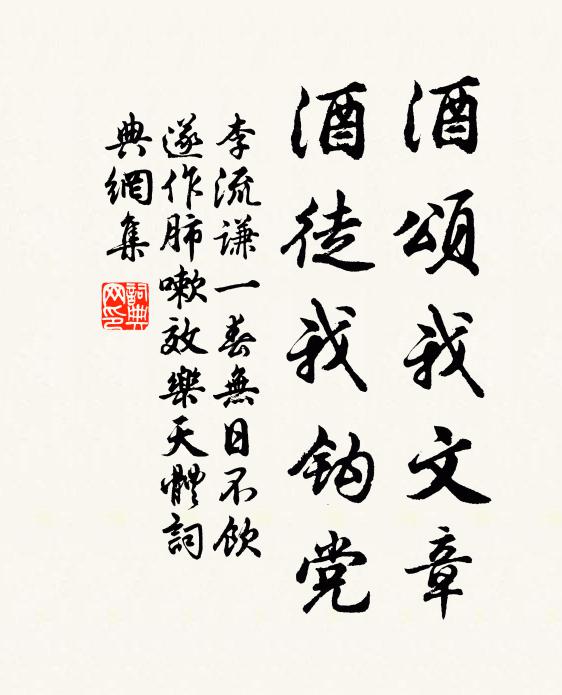 酒頌我文章
酒徒我鈎党
李流謙一春無日不飲
遂作肺嗽效樂天體詞
典網集
詞典網印